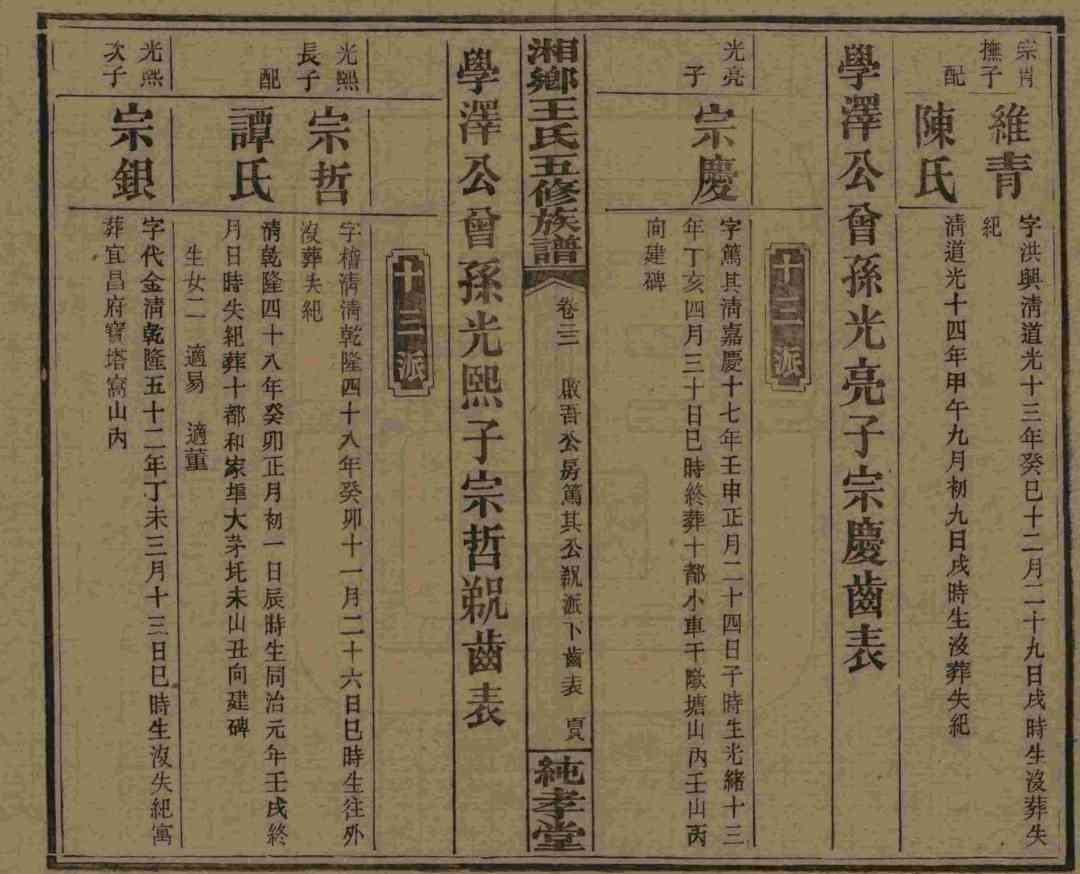 宗胄撫子
維青
字洪興清道光十三年癸巳十二月二十九日戌時生沒葬失
紀
配
陳氏
清道光十四年甲午九月初九日戌時生沒葬失紀
學澤公曾孫光亮子宗慶齒表
十三派
光亮子
宗慶
字篤其清嘉慶十七年壬申正月二十四日子時生光緒十三
年丁亥四月三十日巳時終葬十都小車干歐塘山內壬山丙
向建碑
湘鄉王氏五修族譜
卷三三
啟吾公房篤其公親派下齒表
夏
純孝堂
學澤公曾孫光熙子宗哲親齒表
十三派
光熙長子
宗哲
字稽清清乾隆四十八年癸卯十一月二十六日巳時生往外
沒葬失紀
配
譚氏
清乾隆四十八年癸卯正月初一日辰時生同治元年壬戌終
月日時失紀葬十都和家埠大茅坵未山丑向建碑
生女二
適易
適董
光熙次子
宗銀
字代金清乾隆五十二年丁未三月十三日巳時生沒失紀寓
葬宜昌府寶塔窩山內